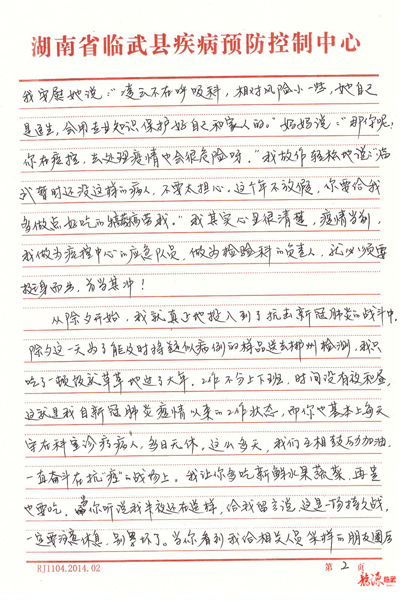 湖南省临武县疾病预防控制中心
我安慰她说："凌云不在呼吸科，相对风险小一些，她自己
是医生，会用专业知识保护好自己和家人的。"妈妈说："那你呢，
你在疾控，去处理疫情也会很危险呀。"我故作轻松地说"临
武暂时还没这样的病人，不要太担心，这个年不放假，你要给我
多做点好吃的 带我。"我其实心里很清楚，疫情当前，
我做为疾控中心的应急队员，做为检验科的负责人，就必须要
挺身而出，首当其冲！
从除夕开始，我就真正地投入到了抗击新冠肺炎的战斗中，
除夕这一天为了能及时将疑似病例的样品送去郴州检测，我只
吃了一顿饭就草草地过了大年，工作不分上下班，时间没有夜和昼，
这就是我自新冠肺炎疫情以来的工作状态，而你也基本上每天
守在科室诊疗病人，多日无休，这么多天，我们互相鼓励加油，
一直奋斗在抗"疫"的战场上。我让你多吃新鲜水果蔬菜，再苦
也要吃，你听说我半夜还在送样，给我留言说，这是一场持久战，
一定要注意休息，别累坏了。当你看到我给相关人员采样的朋友圈后
RJ1104.2014.02
第2页
临武